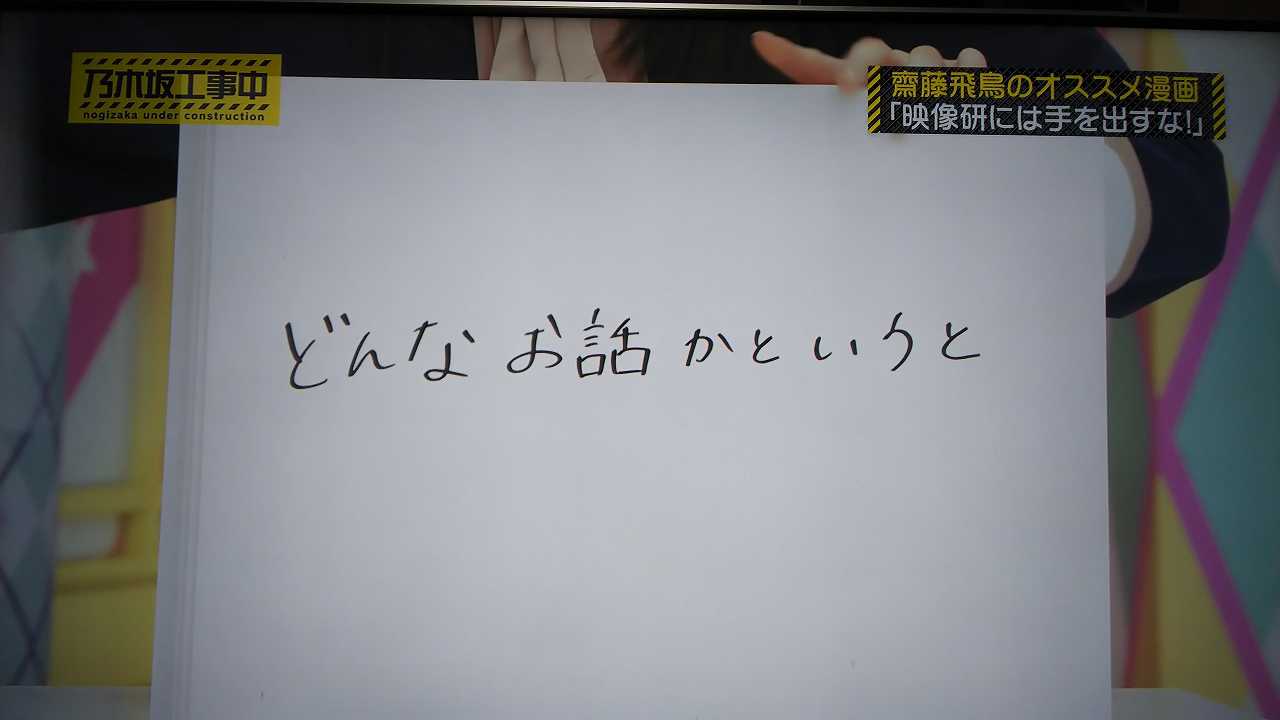 乃木坂工事中
nogizaka under construction
齋藤飛鳥のオススメ漫画
「映像研には手を出すな!」
どんなお話かというと